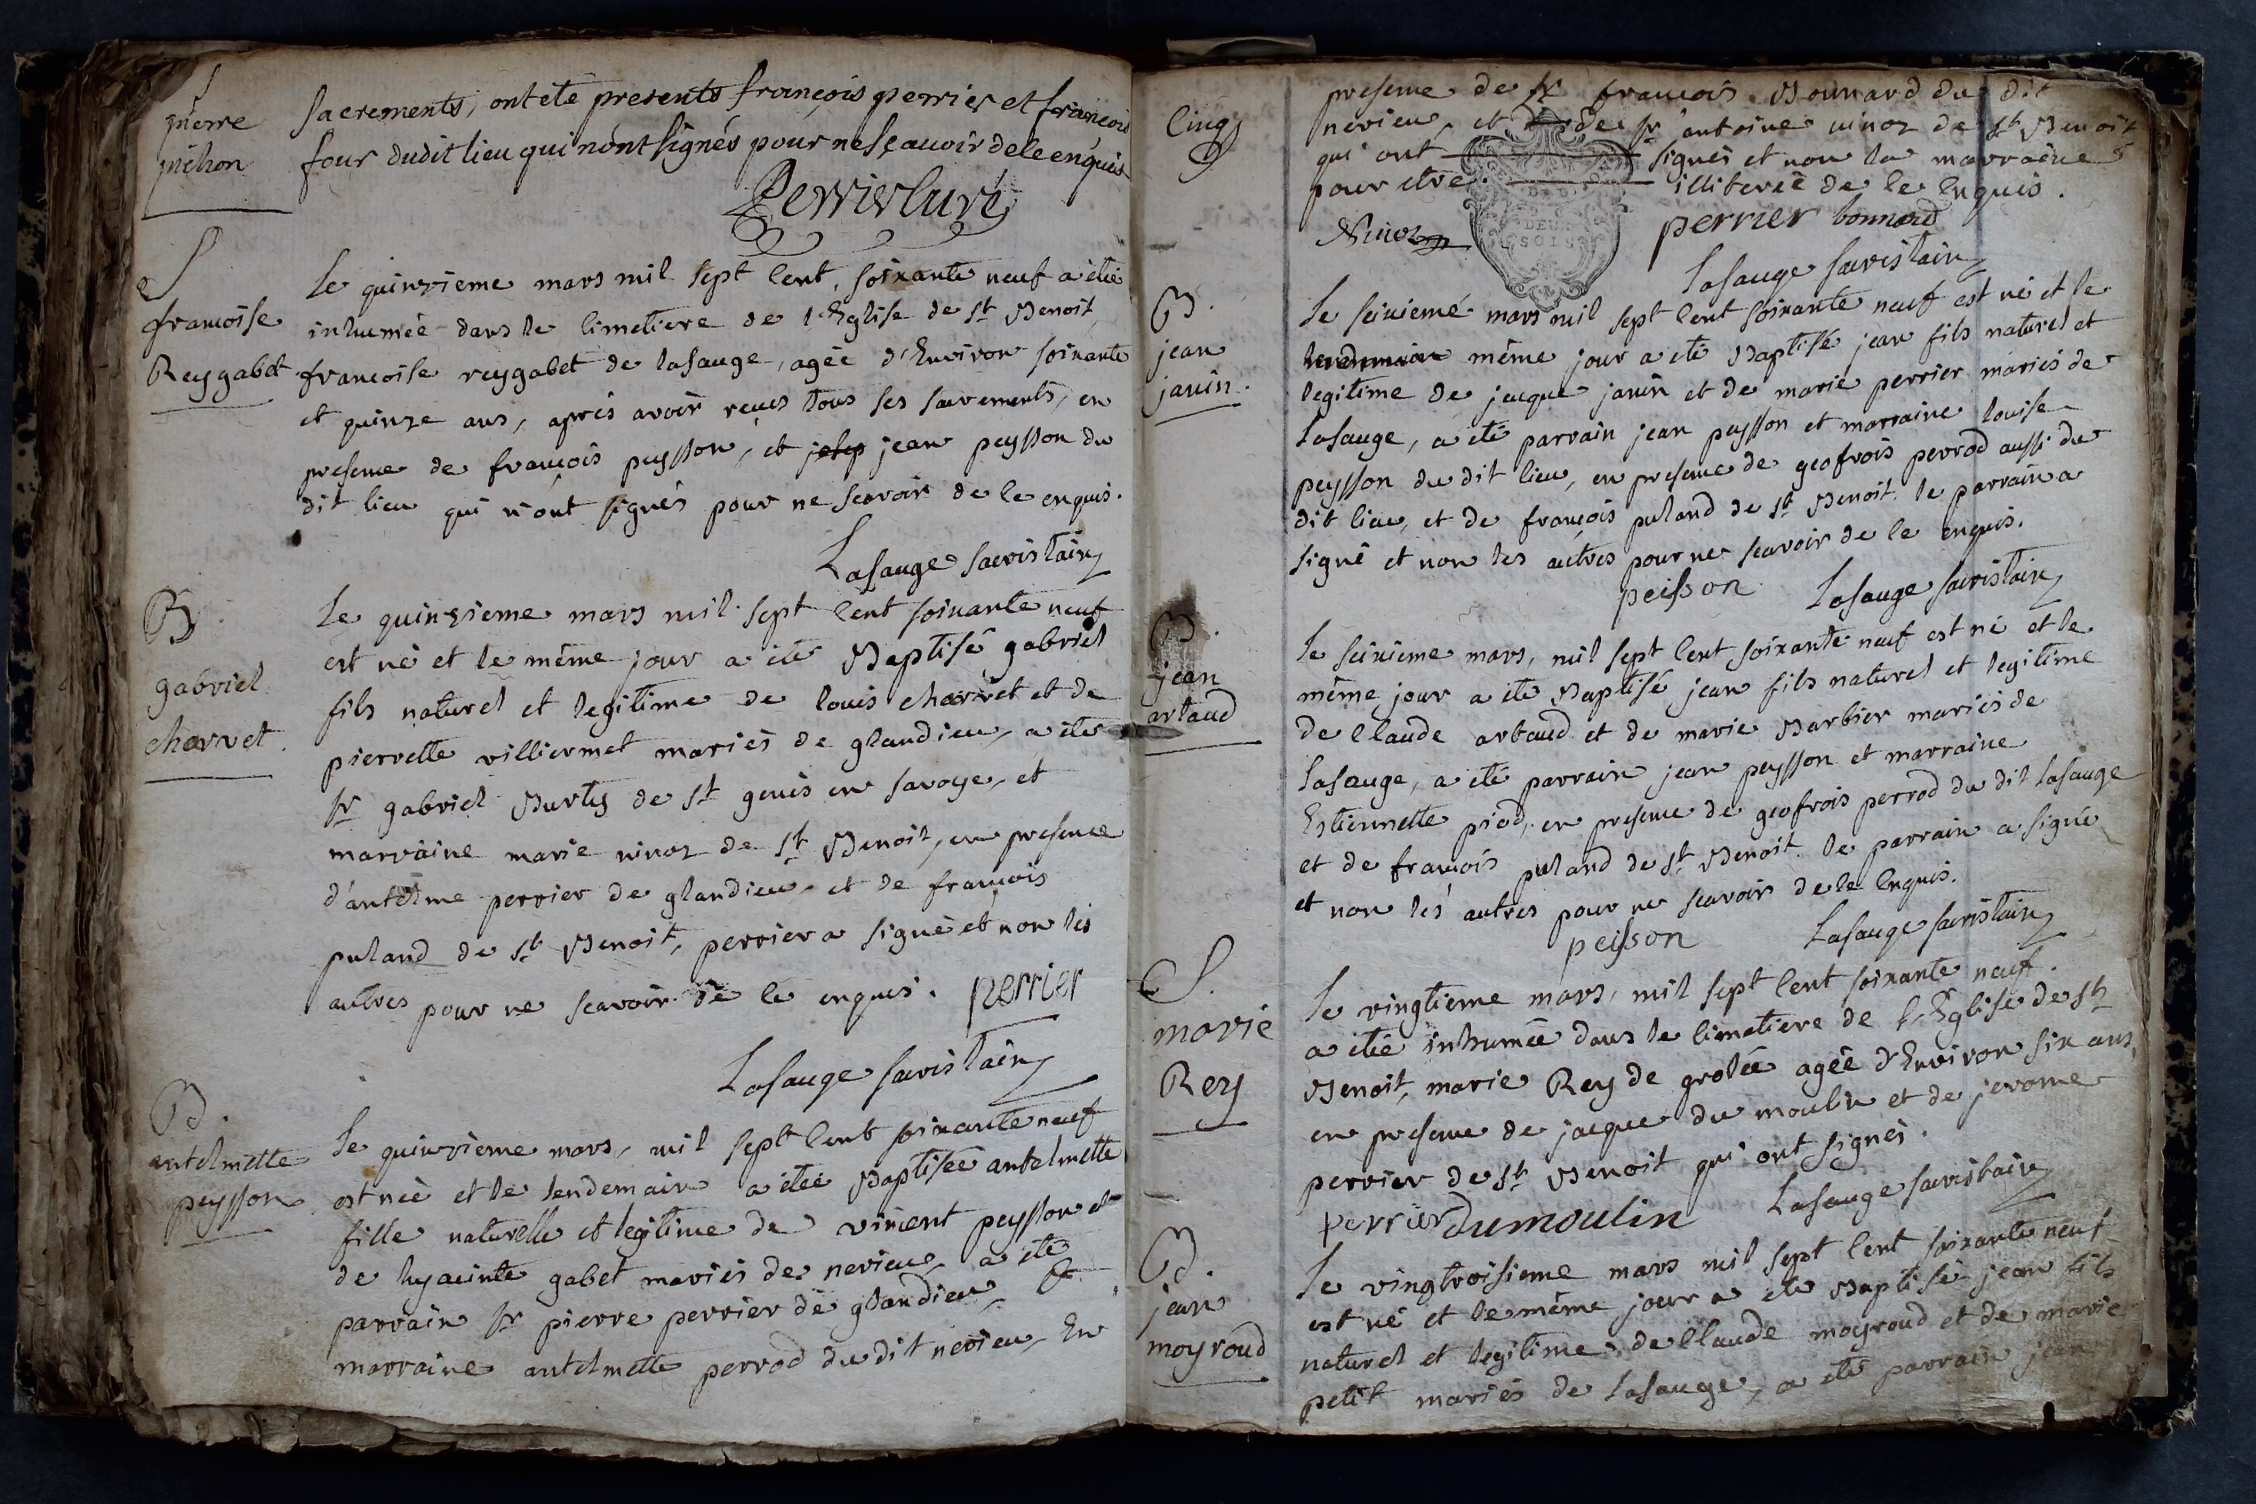 S
pierre
pichon
sacrements, ont été presents françois perrier et françois
four dudit lieu qui n'ont signés pour ne sçauoir de ce enquis
Perrier curé
S
francoise
Reygabet
Le quinzieme mars mil sept cent soixante neuf a étée
inhumée dans le cimetiere de l'Eglise de st Benoit
francoise reygabet de lasauge, agée d'Environ soixante
et quinze ans, aprés avoir reçus tous ses sacrements, en
presence de françois peysson, et jean peysson du
dit lieu qui n'ont signés pour ne scavoir de ce enquis.
Lasauge sacristain
B.
gabriel
charvet.
Le quinzieme mars mil sept cent soixante neuf
est né et le même jour a été Baptisé gabriel
fils naturel et legitime de louis charvet et de
pierrette villiermet mariés de glandieu, a été
sr gabriel Burty de st genis en savoye, et
marraine marie ninoz de st Benoit, en presence
d'antelme perrier de glandieu et de françois
puland de st Benoit, perrier a signé et non les
autres pour ne scavoir de ce enquis. perrier
Lasauge sacristain
B.
antelmette
peysson
Le quinzieme mars, mil sept cent soixante neuf
est née et le lendemain a étée Baptisée antelmette
fille naturelle et legitime de vincent peysson et
de hyacinte gabet mariés de nerieu, a été
parrain sr pierre perrier de glandieu, &
marraine antelmette perrod du dit nerieu, En
Cinq
presence de sr francois Bonnard du dit
nerieu, et de sr antoine ninoz de st Benoit
qui ont signés et non la marraine
pour etre illiterée de ce Enquis.
DEUX
SOLS
Ninoz perrier bonnard
Lasauge sacristain
B.
jean
janin.
Le seizieme mars mil sept cent soixante neuf est né et le
lendemain même jour a été Baptisé jean fils naturel et
legitime de jacque janin et de marie perrier mariés de
Lasauge, a été parrain jean peysson et marraine louise
peysson du dit lieu, en presence de geofrois perrod aussi du
dit lieu, et de françois puland de st Benoit. le parrain a
signé et non les autres pour ne scavoir de ce enquis.
peisson Lasauge sacristain
B.
jean
artaud
Le seizieme mars, mil sept cent soixante neuf est né et le
même jour a été Baptisé jean fils naturel et legitime
de Claude artaud et de marie Barbier mariés de
lasauge, a été parrain jean peysson et marraine
Estiennette piod, en presence de geofrois perrod du dit lasauge
et de françois puland de st Benoit. le parrain a signé
et non les autres pour ne scavoir de ce Enquis.
peisson Lasauge sacristain
S.
marie
Rey
Le vingtieme mars, mil sept cent soixante neuf.
a étée inhumée dans le cimetiere de l'Eglise de st
Benoit, marie Rey de grolée agée d'Environ six ans,
en presence de jacque du moulin et de jerome
perrier de st Benoit qui ont signés.
perrier dumoulin Lasauge sacristain
B.
jean
moyroud
Le vingtroisieme mars mil sept cent soixante neuf
est né et le même jour a été Baptisé jean fils
naturel et legitime de Claude moyroud et de marie
petit mariés de Lasauge, a été parrain jean